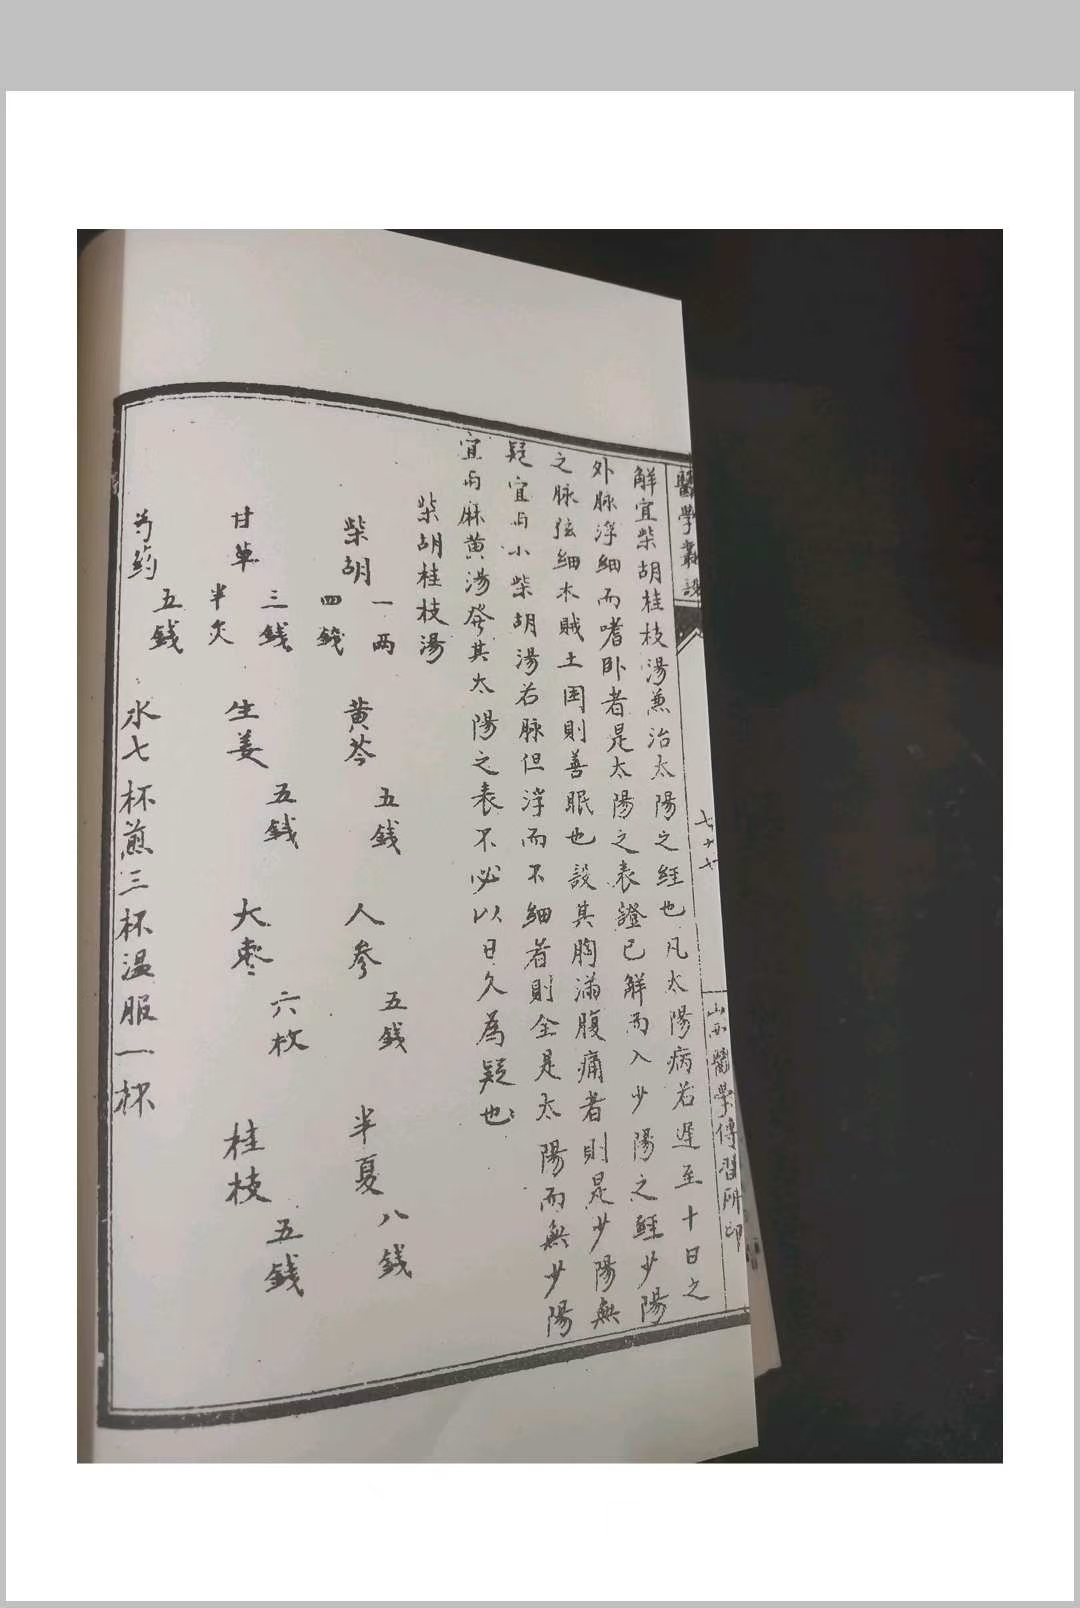 醫學叢設
七十七
山西醫學傅習所印
解宜柴胡桂枝湯兼治太陽之経也凡太陽病若遲至十日之
外脉浮細而嗜卧者是太陽之表證已解而入少陽之經少陽
之脉弦細木賊土困則善眠也設其胸滿腹痛者則是少陽無
疑宜与小柴胡湯若脉但浮而不細者則全是太陽而無少陽
宜与麻黄湯發其太陽之表不必以日久為疑也
柴胡桂枝湯
柴胡 一两四錢 黄芩 五錢 人參 五錢 半夏 八錢
甘草 三錢半灸 生姜 五錢 大棗 六枚 桂枝 五錢
芍药 五錢 水七杯煎三杯温服一杯